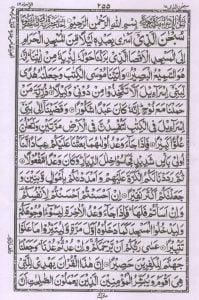 ٢٥٥
بِسْمِ اللهِ الرَّحْمٰنِ الرَّحِيْمِ
سُبْحٰنَ الَّذِيْۤ اَسْرٰى بِعَبْدِهٖ لَيْلًا مِّنَ الْمَسْجِدِ الْحَرَامِ
اِلَى الْمَسْجِدِ الْاَقْصَا الَّذِيْ بٰرَكْنَا حَوْلَهٗ لِنُرِيَهٗ مِنْ اٰيٰتِنَا اِنَّهٗ
هُوَ السَّمِيْعُ الْبَصِيْرُ وَاٰتَيْنَا مُوْسَى الْكِتٰبَ وَجَعَلْنٰهُ هُدًى
لِّبَنِيْۤ اِسْرَآءِيْلَ اَلَّا تَتَّخِذُوْا مِنْ دُوْنِيْ وَكِيْلًا ذُرِّيَّةَ مَنْ
حَمَلْنَا مَعَ نُوْحٍ اِنَّهٗ كَانَ عَبْدًا شَكُوْرًا وَقَضَيْنَاۤ اِلٰى بَنِيْۤ
اِسْرَآءِيْلَ فِي الْكِتٰبِ لَتُفْسِدُنَّ فِي الْاَرْضِ مَرَّتَيْنِ وَلَتَعْلُنَّ
عُلُوًّا كَبِيْرًا فَاِذَا جَآءَ وَعْدُ اُوْلٰىهُمَا بَعَثْنَا عَلَيْكُمْ عِبَادًا لَّنَاۤ
اُولِيْ بَاْسٍ شَدِيْدٍ فَجَاسُوْا خِلٰلَ الدِّيَارِ وَكَانَ وَعْدًا مَّفْعُوْلًا
ثُمَّ رَدَدْنَا لَكُمُ الْكَرَّةَ عَلَيْهِمْ وَاَمْدَدْنٰكُمْ بِاَمْوَالٍ وَّبَنِيْنَ وَ
جَعَلْنٰكُمْ اَكْثَرَ نَفِيْرًا اِنْ اَحْسَنْتُمْ اَحْسَنْتُمْ لِاَنْفُسِكُمْ
وَاِنْ اَسَاْتُمْ فَلَهَا فَاِذَا جَآءَ وَعْدُ الْاٰخِرَةِ لِيَسُوْٓءُا وُجُوْهَكُمْ
وَلِيَدْخُلُوا الْمَسْجِدَ كَمَا دَخَلُوْهُ اَوَّلَ مَرَّةٍ وَّلِيُتَبِّرُوْا مَا عَلَوْا
تَتْبِيْرًا عَسٰى رَبُّكُمْ اَنْ يَّرْحَمَكُمْ وَاِنْ عُدْتُّمْ عُدْنَا وَجَعَلْنَا
جَهَنَّمَ لِلْكٰفِرِيْنَ حَصِيْرًا اِنَّ هٰذَا الْقُرْاٰنَ يَهْدِيْ لِلَّتِيْ
هِيَ اَقْوَمُ وَيُبَشِّرُ الْمُؤْمِنِيْنَ الَّذِيْنَ يَعْمَلُوْنَ الصّٰلِحٰتِ اَنَّ